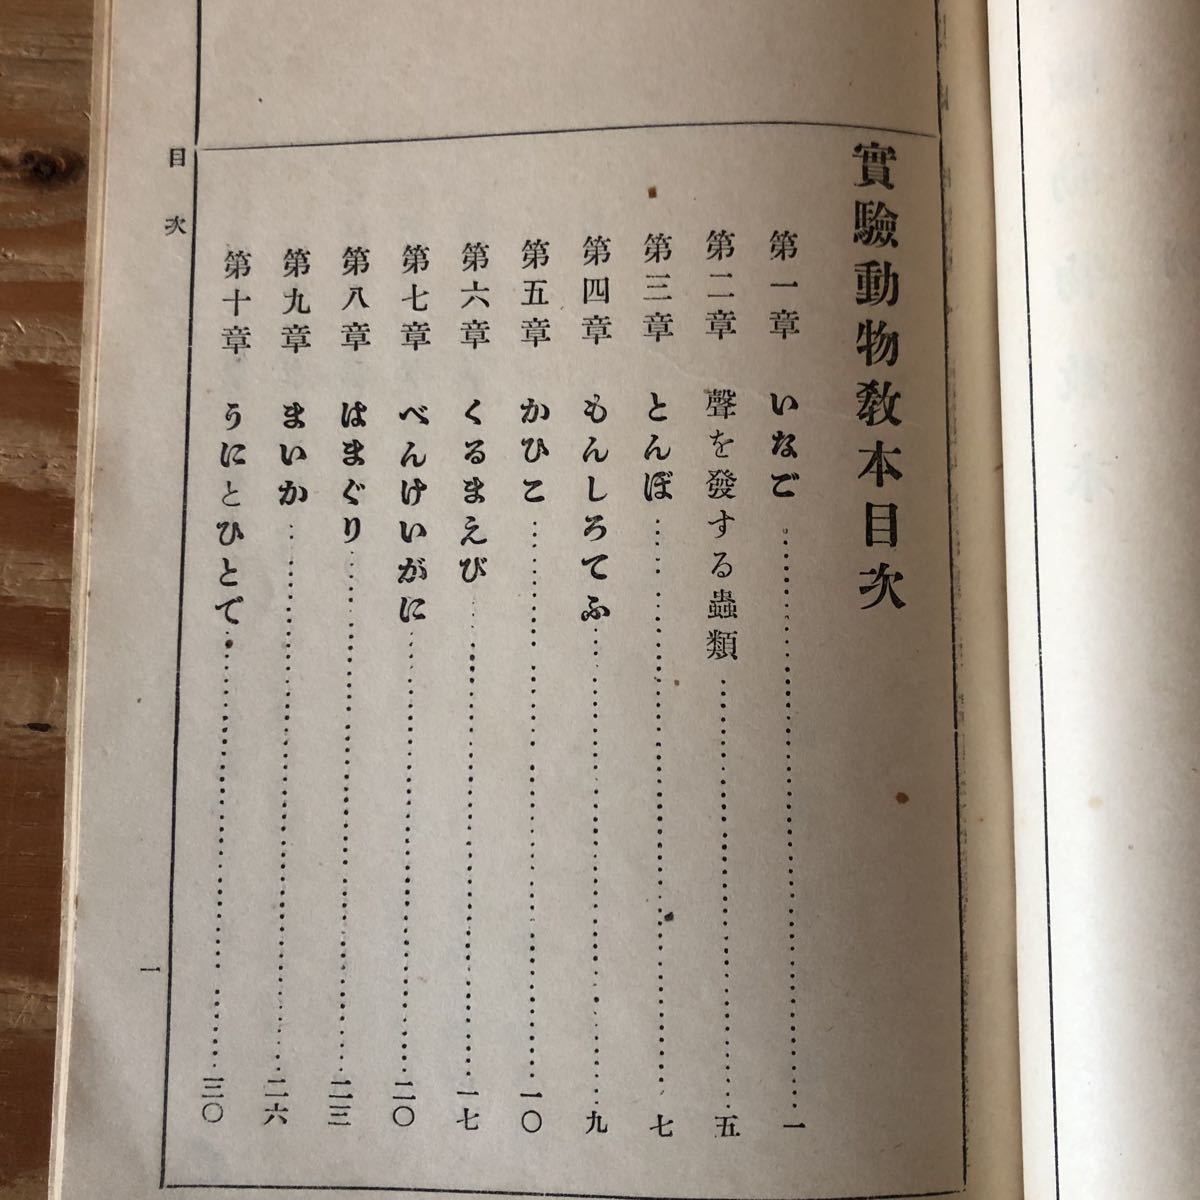 實驗動物敎本目次
第一章 いなご……………一
第二章 聲を發する蟲類……………五
第三章 とんぼ……………七
第四章 もんしろてふ……………九
第五章 かひこ……………一〇
第六章 くるまえび……………一七
第七章 べんけいがに……………二〇
第八章 はまぐり……………二三
第九章 まいか……………二六
第十章 うにとひとで……………三〇
目次
一